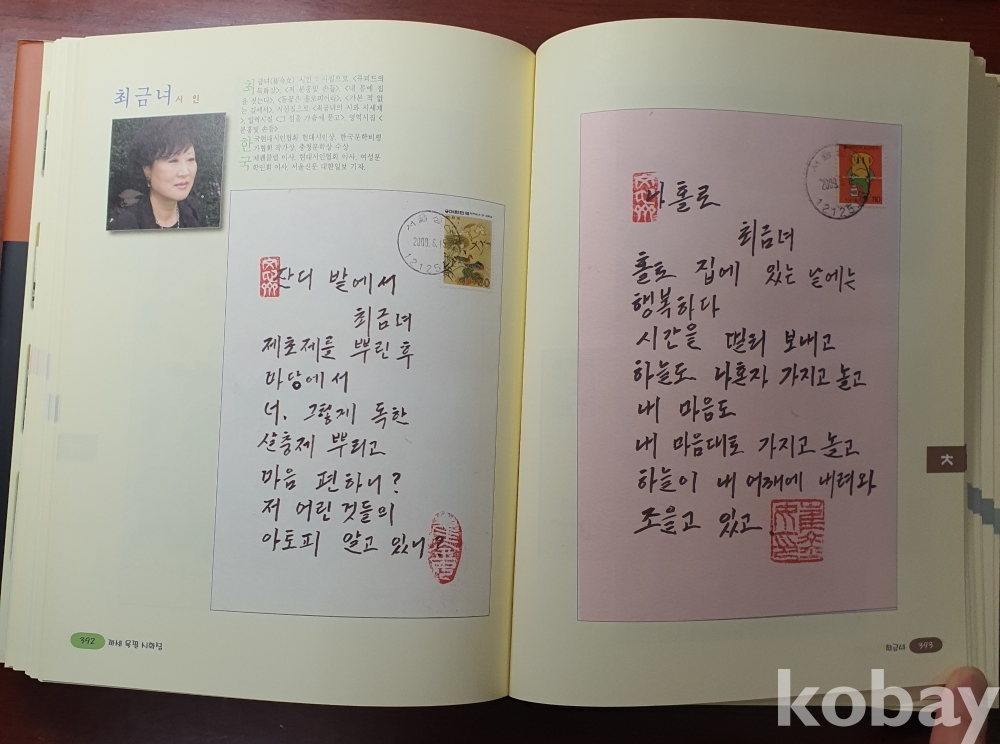 최금녀 시인
최금녀(崔今女) 시인 시집으로 <큐피드의
독화살>, <저 분홍빛 손들> <내 몸에 집
을 짓는다> <들꽃은 홀로피어라>, <가본 적 없
는 길에서> 시선집으로 <최금녀의 시와 시세계
>, 일역시집 <그 섬을 가슴에 묻고>, 영역시집 <
분홍빛 손들>
한국현대시인협회 현대시인상, 한국문학비평
가협회 작가상, 충청문학상 수상
국제펜클럽 이사, 현대시인협회 이사, 여성문
학인회 이사, 서울신문 대한일보 기자.
대한민국
2009. 6. 15
12125
80
잔디 밭에서
최금녀
제초제를 뿌린 후
마당에서
너, 그렇게 독한
살충제 뿌리고
마음 편하니?
저 어린 것들의
아토피 알고 있니?
392 육필 시화집
2009.
12125
나 홀로
최금녀
홀로 집에 있는 날에는
행복하다
시간을 멀리 보내고
하늘도 나혼자 가지고 놀고
내 마음도
내 마음대로 가지고 놀고
하늘이 내 어깨에 내려와
조을고 있고
ㅊ
최금녀 393
kobay